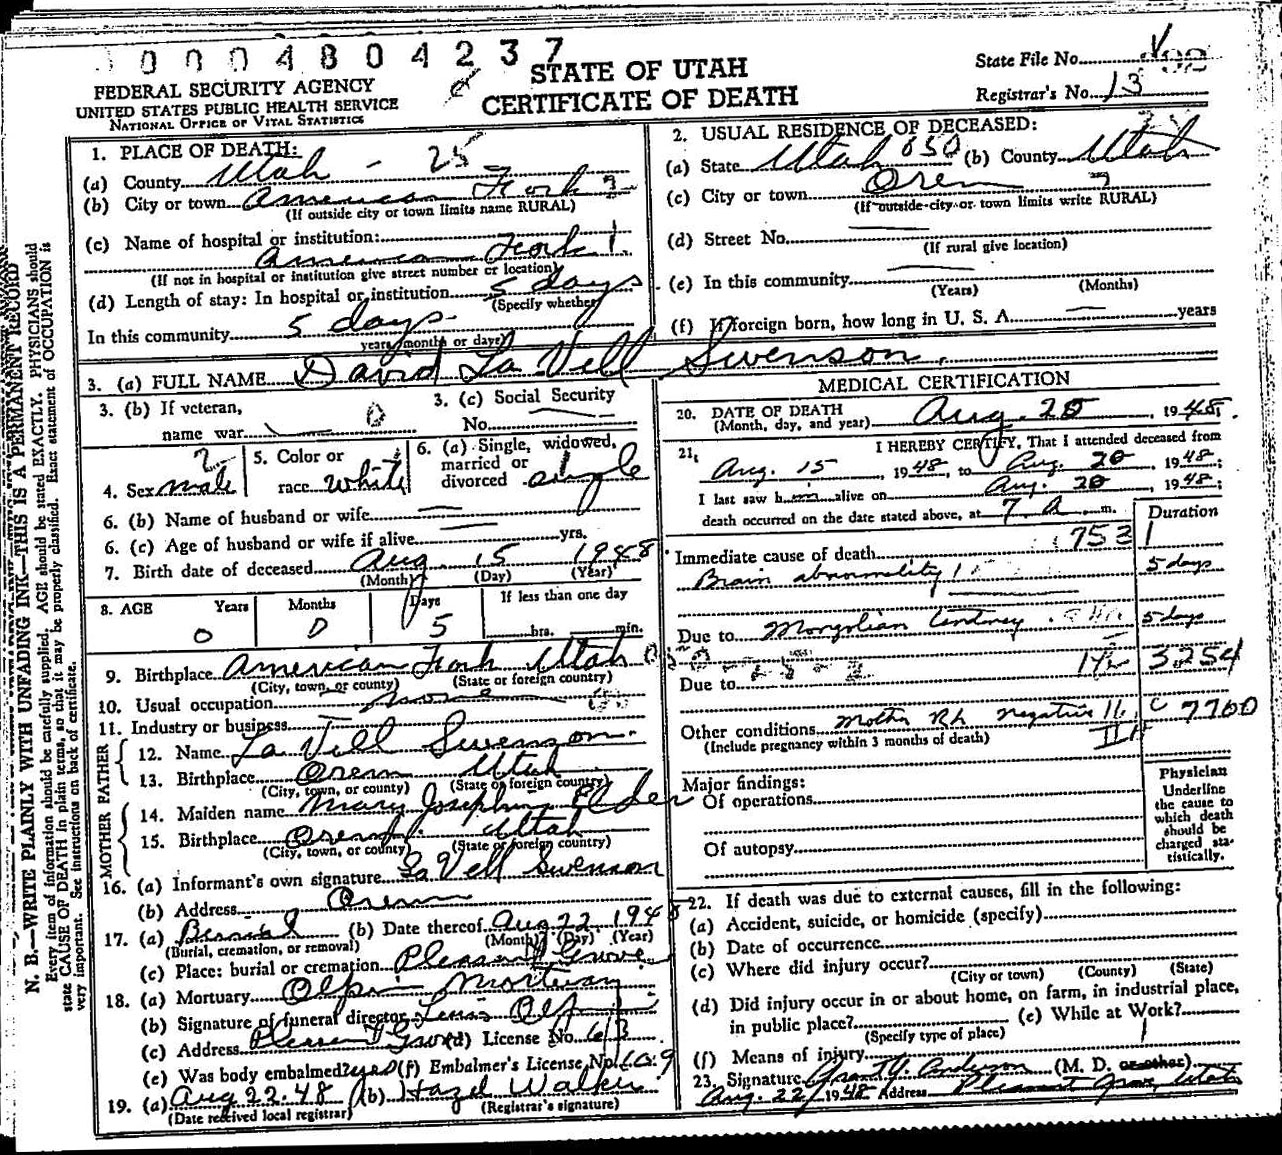 0004804237
FEDERAL SECURITY AGENCY
UNITED STATES PUBLIC HEALTH SERVICE
NATIONAL OFFICE OF VITAL STATISTICS
STATE OF UTAH
CERTIFICATE OF DEATH
State File No.
Registrar's No. 13
N. B.—WRITE PLAINLY WITH UNFADING INK—THIS IS A PERMANENT RECORD
Every item of information should be carefully supplied. AGE should be stated EXACTLY. PHYSICIANS should
state CAUSE OF DEATH in plain terms, so that it may be properly classified. Exact statement of OCCUPATION is
very important. See instructions on back of certificate.
1. PLACE OF DEATH:
(a) County Utah - 25
(b) City or town American Fork
(If outside city or town limits name RURAL)
(c) Name of hospital or institution:
American Fork
(If not in hospital or institution give street number or location)
(d) Length of stay: In hospital or institution 5 days
(Specify whether
In this community 5 days
years, months or days)
2. USUAL RESIDENCE OF DECEASED:
(a) State Utah 850 (b) County Utah
(c) City or town Orem
(If outside city or town limits write RURAL)
(d) Street No.
(If rural give location)
(e) In this community
(Years) (Months)
(f) If foreign born, how long in U. S. A. years
3. (a) FULL NAME David La Vell Swenson
3. (b) If veteran,
name war
3. (c) Social Security
No.
4. Sex male
5. Color or
race white
6. (a) Single, widowed,
married or
divorced single
6. (b) Name of husband or wife
6. (c) Age of husband or wife if alive yrs.
7. Birth date of deceased Aug. 15 1948
(Month) (Day) (Year)
8. AGE Years Months Days If less than one day
0 0 5 hrs. min.
9. Birthplace American Fork Utah
(City, town, or county) (State or foreign country)
10. Usual occupation none
11. Industry or business
FATHER
12. Name La Vell Swenson
13. Birthplace Orem Utah
(City, town, or county) (State or foreign country)
MOTHER
14. Maiden name Mary Josephine Elder
15. Birthplace Orem Utah
(City, town, or county) (State or foreign country)
16. (a) Informant's own signature La Vell Swenson
(b) Address Orem
17. (a) Burial (b) Date thereof Aug 22, 1948
(Burial, cremation, or removal) (Month) (Day) (Year)
(c) Place: burial or cremation Pleasant Grove
18. (a) Mortuary Olpin Mortuary
(b) Signature of funeral director Olpin
(c) Address Pleasant Grove (d) License No. 613
(e) Was body embalmed? yes (f) Embalmer's License No.
19. (a) Aug 22.48 (b) Hazel Walker
(Date received local registrar) (Registrar's signature)
MEDICAL CERTIFICATION
20. DATE OF DEATH Aug. 20, 1948.
(Month, day, and year)
21. I HEREBY CERTIFY, That I attended deceased from
Aug. 15, 1948, to Aug. 20, 1948;
I last saw him alive on Aug. 20, 1948;
death occurred on the date stated above, at 7 A. m.
Duration
Immediate cause of death
Brain abnormality 5 days
Due to Mongolian 5 days
Due to 3254
Other conditions Mother Rh negative 7700
(Include pregnancy within 3 months of death)
Major findings:
Of operations
Of autopsy
Physician
Underline
the cause to
which death
should be
charged sta-
tistically.
22. If death was due to external causes, fill in the following:
(a) Accident, suicide, or homicide (specify)
(b) Date of occurrence
(c) Where did injury occur?
(City or town) (County) (State)
(d) Did injury occur in or about home, on farm, in industrial place,
in public place? (e) While at Work?
(Specify type of place)
(f) Means of injury
23. Signature Grant Y. Anderson (M. D. or other)
Aug. 22, 1948 Address Pleasant Grove, Utah